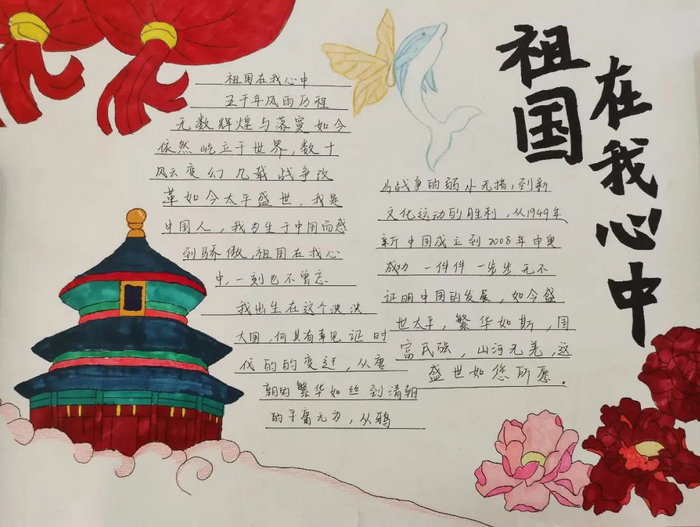 祖国
在我心中
祖国在我心中
五千年风雨历程
无数辉煌与落寞如今
依然屹立于世界，数十
风云变幻几载战争改
革如今太平盛世，我是
中国人，我为生于中国而感
到骄傲，祖国在我心
中，一刻也不曾忘
我出生在这个泱泱
大国，何其有幸见证时
代的的变迁，从唐
朝的繁华如丝到清朝
的干腐无力，从鸦
片战争的弱小无措，到新
文化运动的胜利，从1949年
新中国成立到2008年申奥
成功 一件件一步步无不
证明中国的发展，如今盛
世太平，繁华如斯，国
富民强，山河无羌，这
盛世如您所愿．